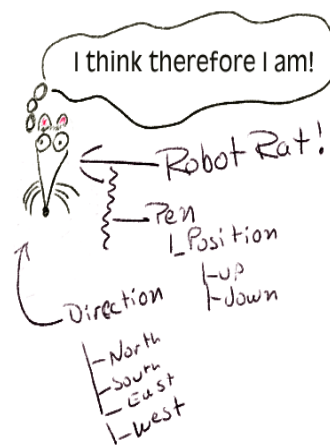 I think therefore I am!
Robot Rat!
Pen
Position
up
down
Direction
North
South
East
West